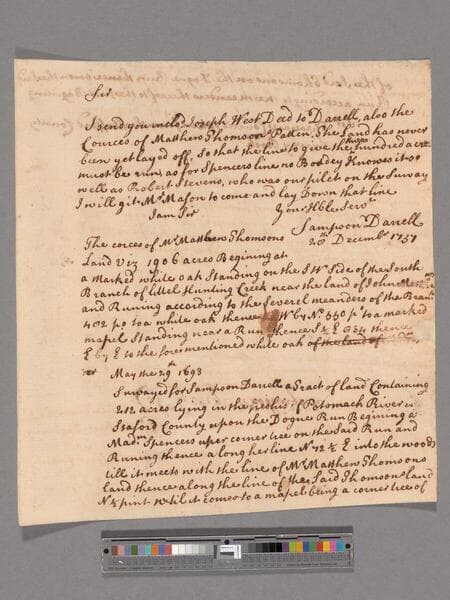 Sir
I send you incloᵈ Joseph West Deed to Darrell, also the
Cources of Matthew Thomsons Patten. The Land has never
been yet layed off, so that the line to give the hundred acre
must be run, as for Spencers line no Boddey Knowes it so
well as Robert Stevens, who was our pilet on the Survay
I will git Mʳ Mason to come and lay Down that line
I am Sir Your Hble Servᵗ
Sampson Darrell
20ᵗʰ Decembʳ 1757
The corces of Mʳ Matthew Thomsons
Land Viz 1906 acres Begining at
a marked white oak Standing on the SW Side of the South
Branch of Littel Hunting Creek near the land of John
and Running according to the Severel meanders of the
402 po to a white oak thence W by N 550 pᵒ to a marked
mapel Standing near a Run thence S E 034 thence
E by E to the fore mentioned white oak of the land of
May the 29ᵗʰ 1693
Survayed for Sampson Darrell a Tract of land Containing
212 acres lying in the of Potomack River in
Staford County upon the Dogue Run Begining a
Madᵐ Spencers uper corner tree on the Said Run and
Runing thence along her line N 12 ½ E into the woods
till it meets with the line of Mʳ Matthew Thomsons
land thence along the line of the Said Thomsons land
N ½ pint until it comes to a mapel being a corner tree of